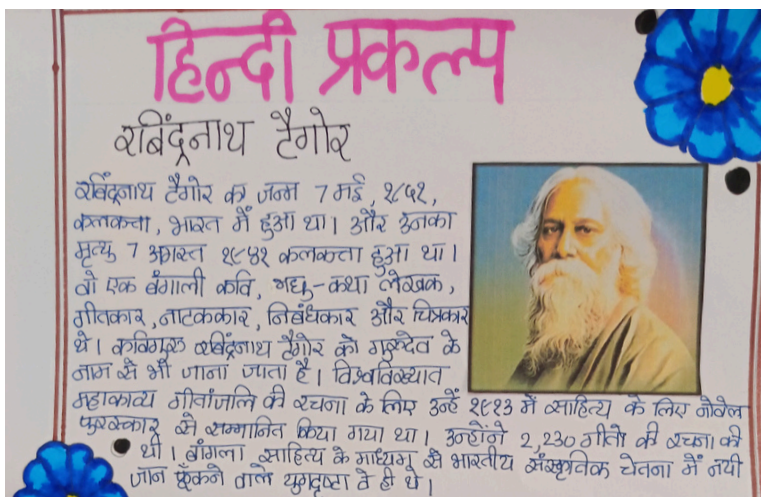 हिन्दी प्रकल्प
रबिंद्रनाथ टैगोर
रबिंद्रनाथ टैगोर क जन्म 7 मई, १८५१,
कलकत्ता, भारत में हुआ था। और उनका
मृत्यु 7 अगस्त १९४१ कलकत्ता हुआ था।
वो एक बंगाली कवि, लघु-कथा लेखक,
गीतकार, नाटककार, निबंधकार और चित्रकार
थे। कविगुरु रबिंद्रनाथ टैगोर को गुरुदेव के
नाम से भी जाना जाता है। विश्वविख्यात
महाकाव्य गीतांजलि की रचना के लिए उन्हें १९१३ में साहित्य के लिए नोबेल
पुरस्कार से सम्मानित किया गया था। उन्होंने 2,230 गीतो की रचना की
थी। बांगला साहित्य के माध्यम से भारतीय संस्कृतिक चेतना में नयी
जान फूँकने वाले युगदृष्टा वे ही थे।